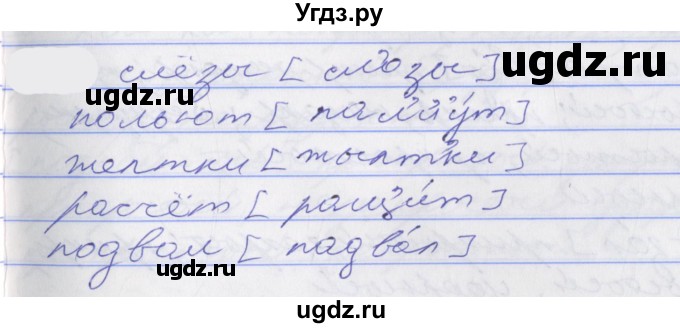 Угдз.ру
ugdz.ru
слёзы [ сл'озы ]
ugdz.ru
польют [ пал'йу́т ]
ugdz.ru
желтки [ жылтки ]
расчёт [ ращ'и́т ]
подвал [ падва́л ]
ugdz.ru
ugdz.ru
ugdz.ru